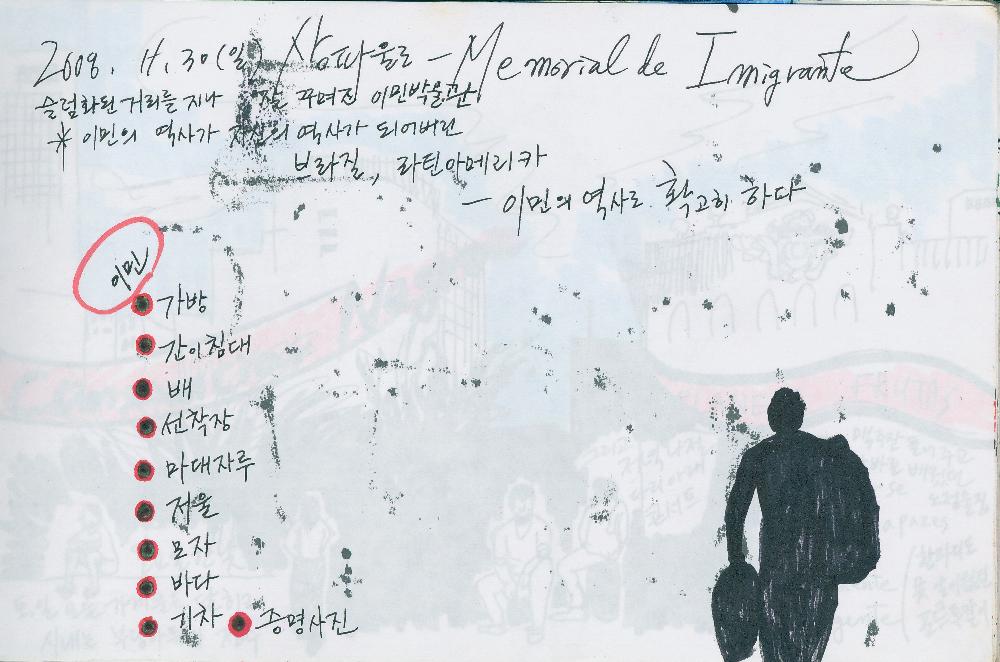 2008. 11. 30 (일) 상파울로 - Memorial de Imigrante
슬럼화된 거리를 지나 잘 꾸며진 이민박물관
* 이민의 역사가 자신의 역사가 되어버린
브라질, 라틴아메리카
- 이민의 역사로 확고히 하다
이민
가방
간이침대
배
선착장
마대자루
저울
모자
바다
기차 증명사진